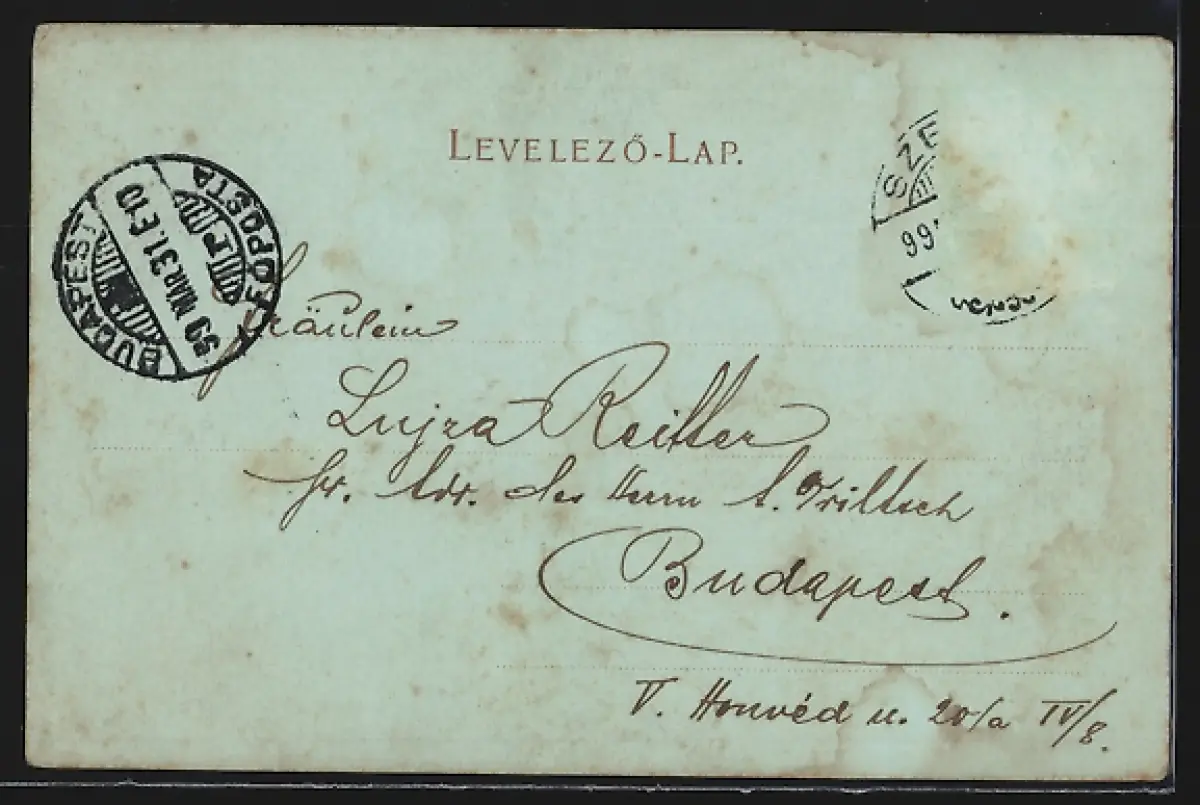 LEVELEZŐ-LAP.
BUDAPEST FŐPOSTA
99 MAR. 31. E 10
SZE
99
Fräulein
Lujza Reitter
pr. Adr. des Herrn A. Triltsch
Budapest.
V. Honvéd u. 20/a IV/8.